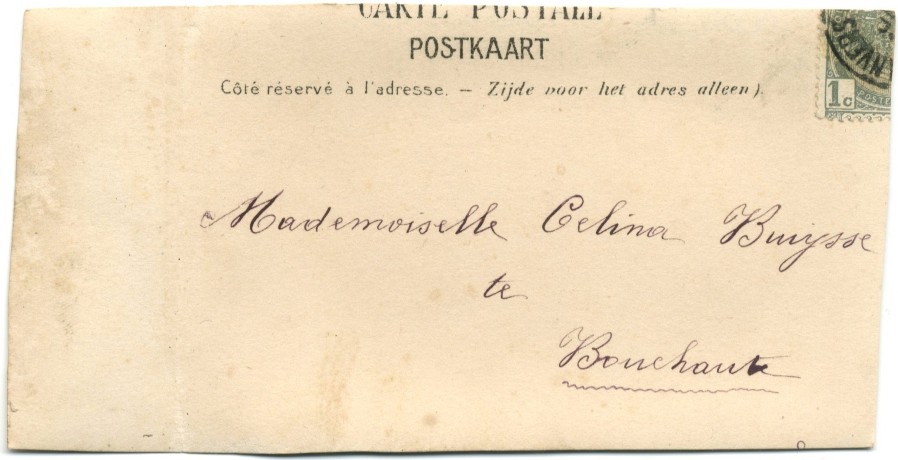 CARTE POSTALE
POSTKAART
Côté réservé à l'adresse. – Zijde voor het adres alleen).
NVERS
1c
POSTE
Mademoiselle Celina Buysse
te
Bouchaute